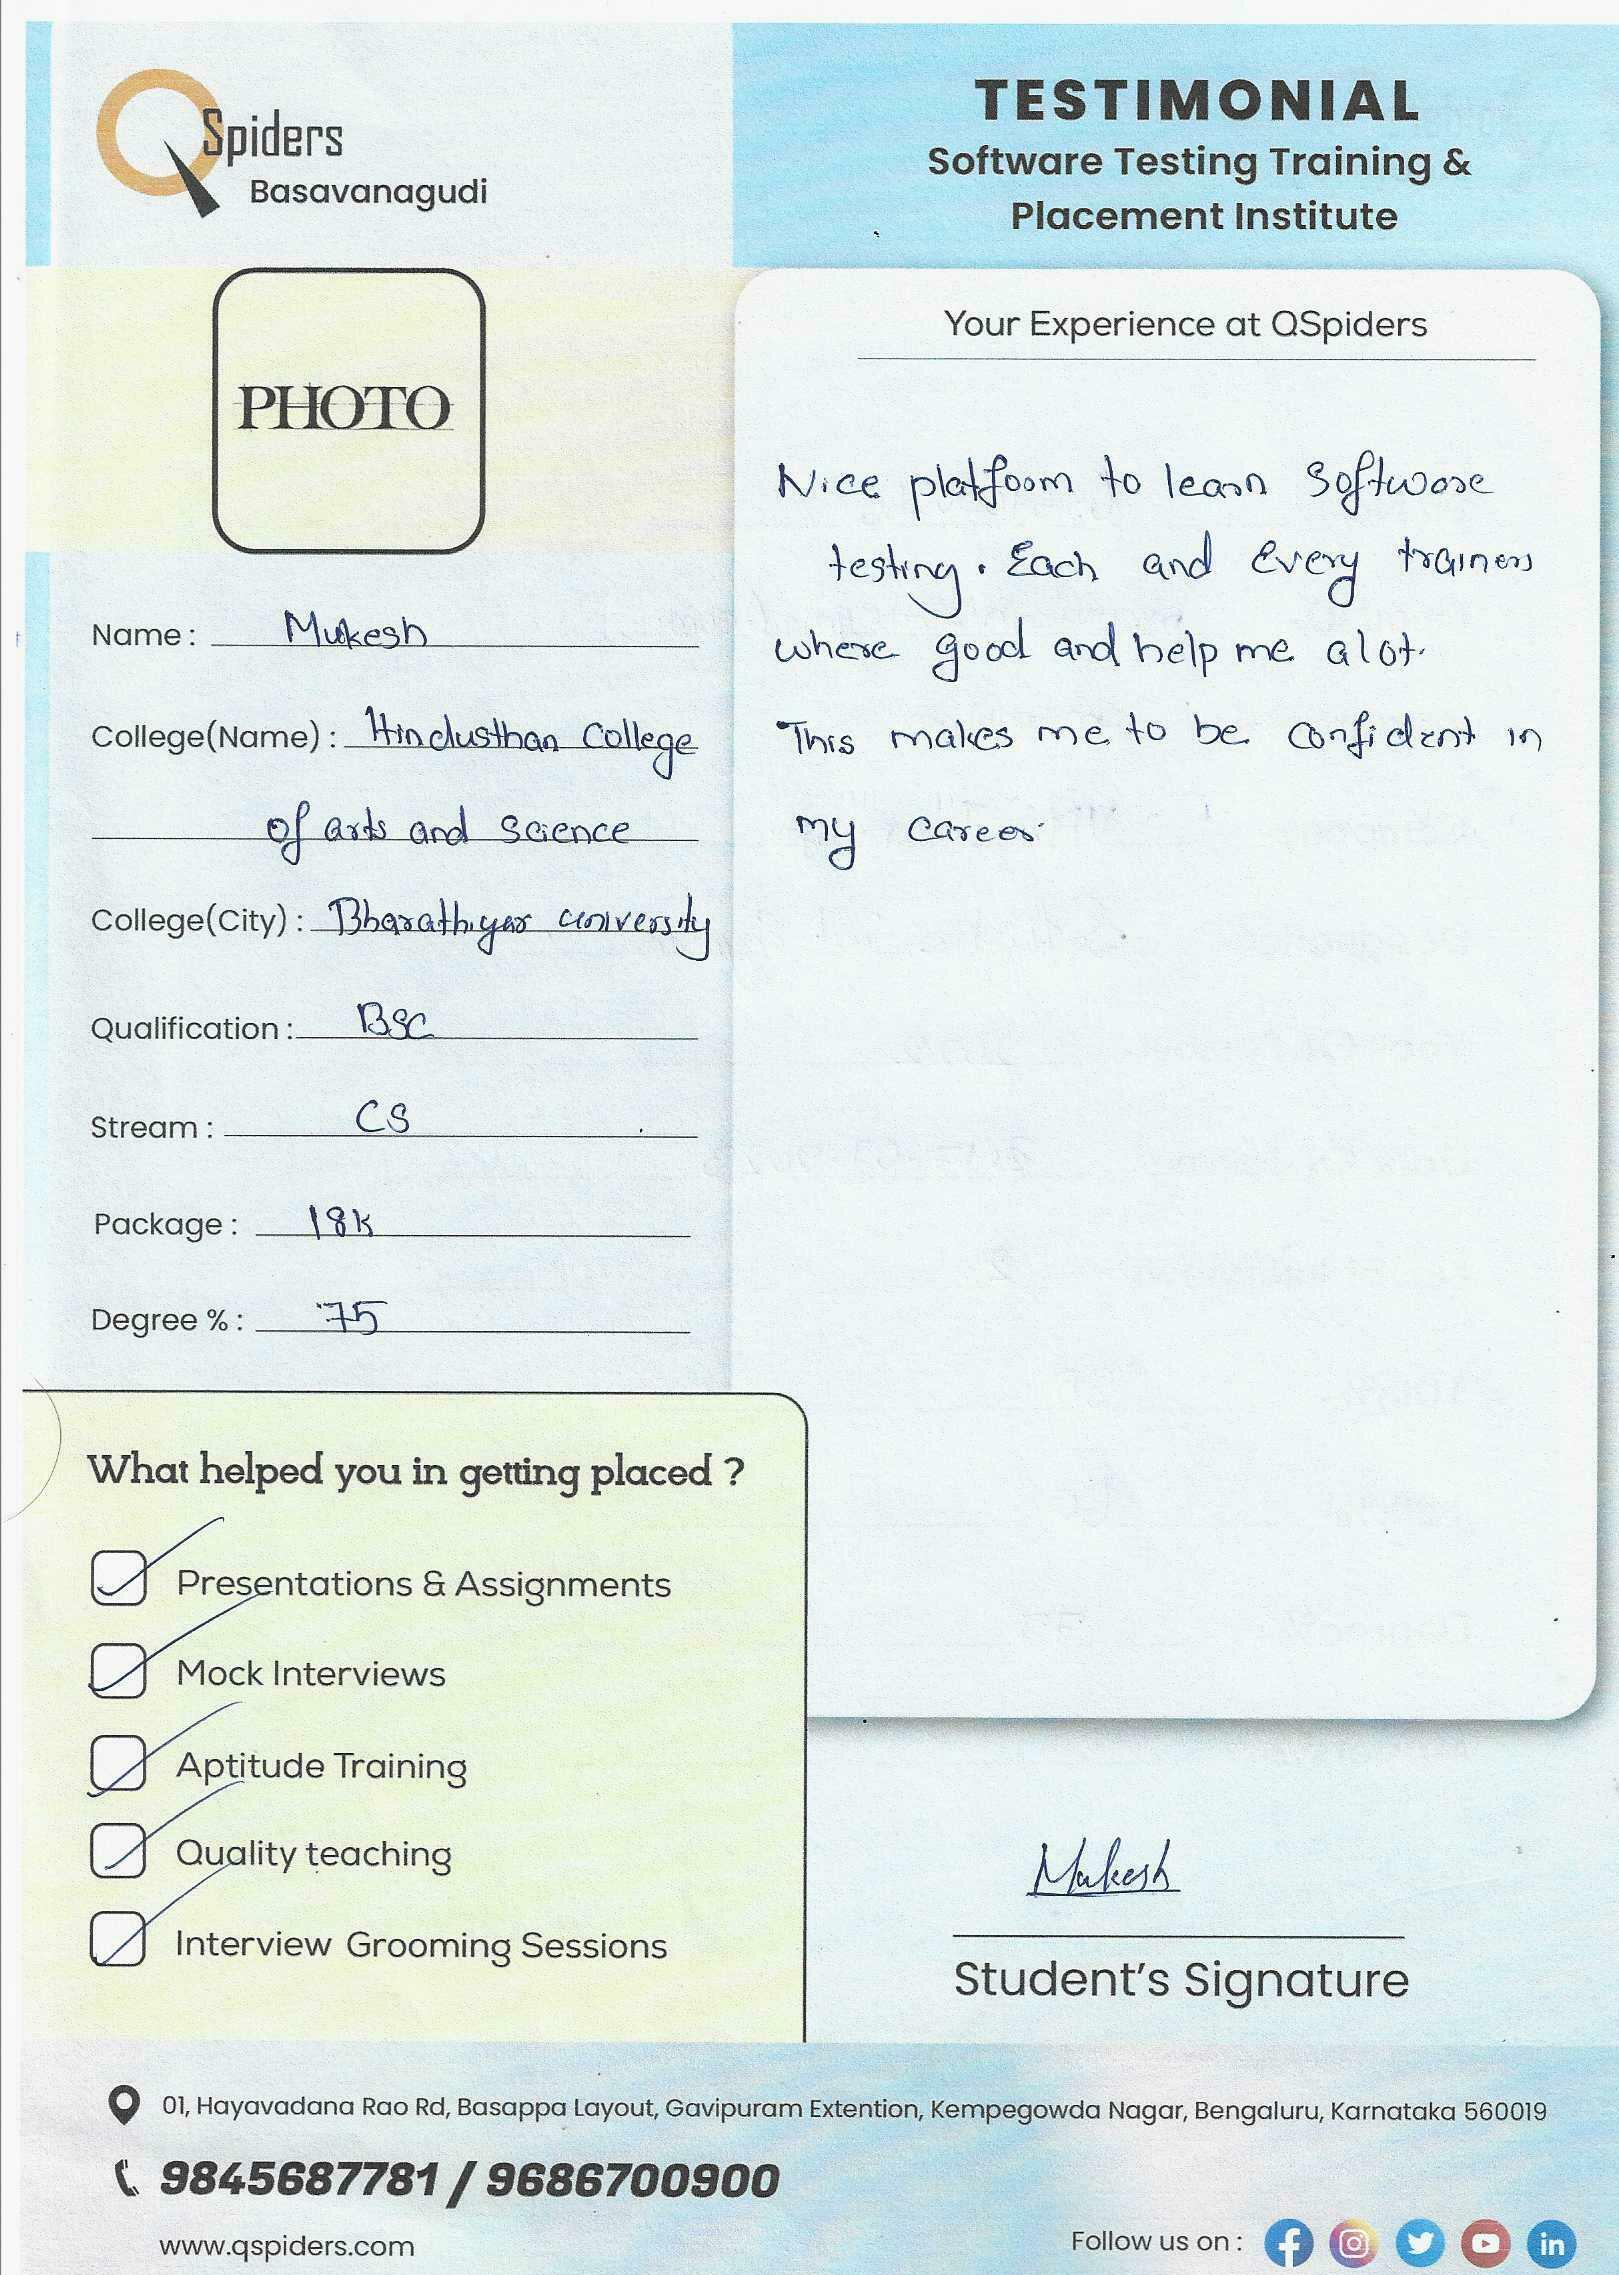 QSpiders
Basavanagudi
TESTIMONIAL
Software Testing Training &
Placement Institute
PHOTO
Name : Mukesh
College(Name) : Hindusthan College
of arts and science
College(City) : Bharathiyar university
Qualification : BSC
Stream : CS
Package : 18k
Degree % : 75
Your Experience at QSpiders
Nice platform to learn Software
testing. Each and every trainers
where good and help me alot.
This makes me to be confident in
my career.
What helped you in getting placed ?
Presentations & Assignments
Mock Interviews
Aptitude Training
Quality teaching
Interview Grooming Sessions
Mukesh
Student's Signature
01, Hayavadana Rao Rd, Basappa Layout, Gavipuram Extention, Kempegowda Nagar, Bengaluru, Karnataka 560019
9845687781 / 9686700900
www.qspiders.com
Follow us on :